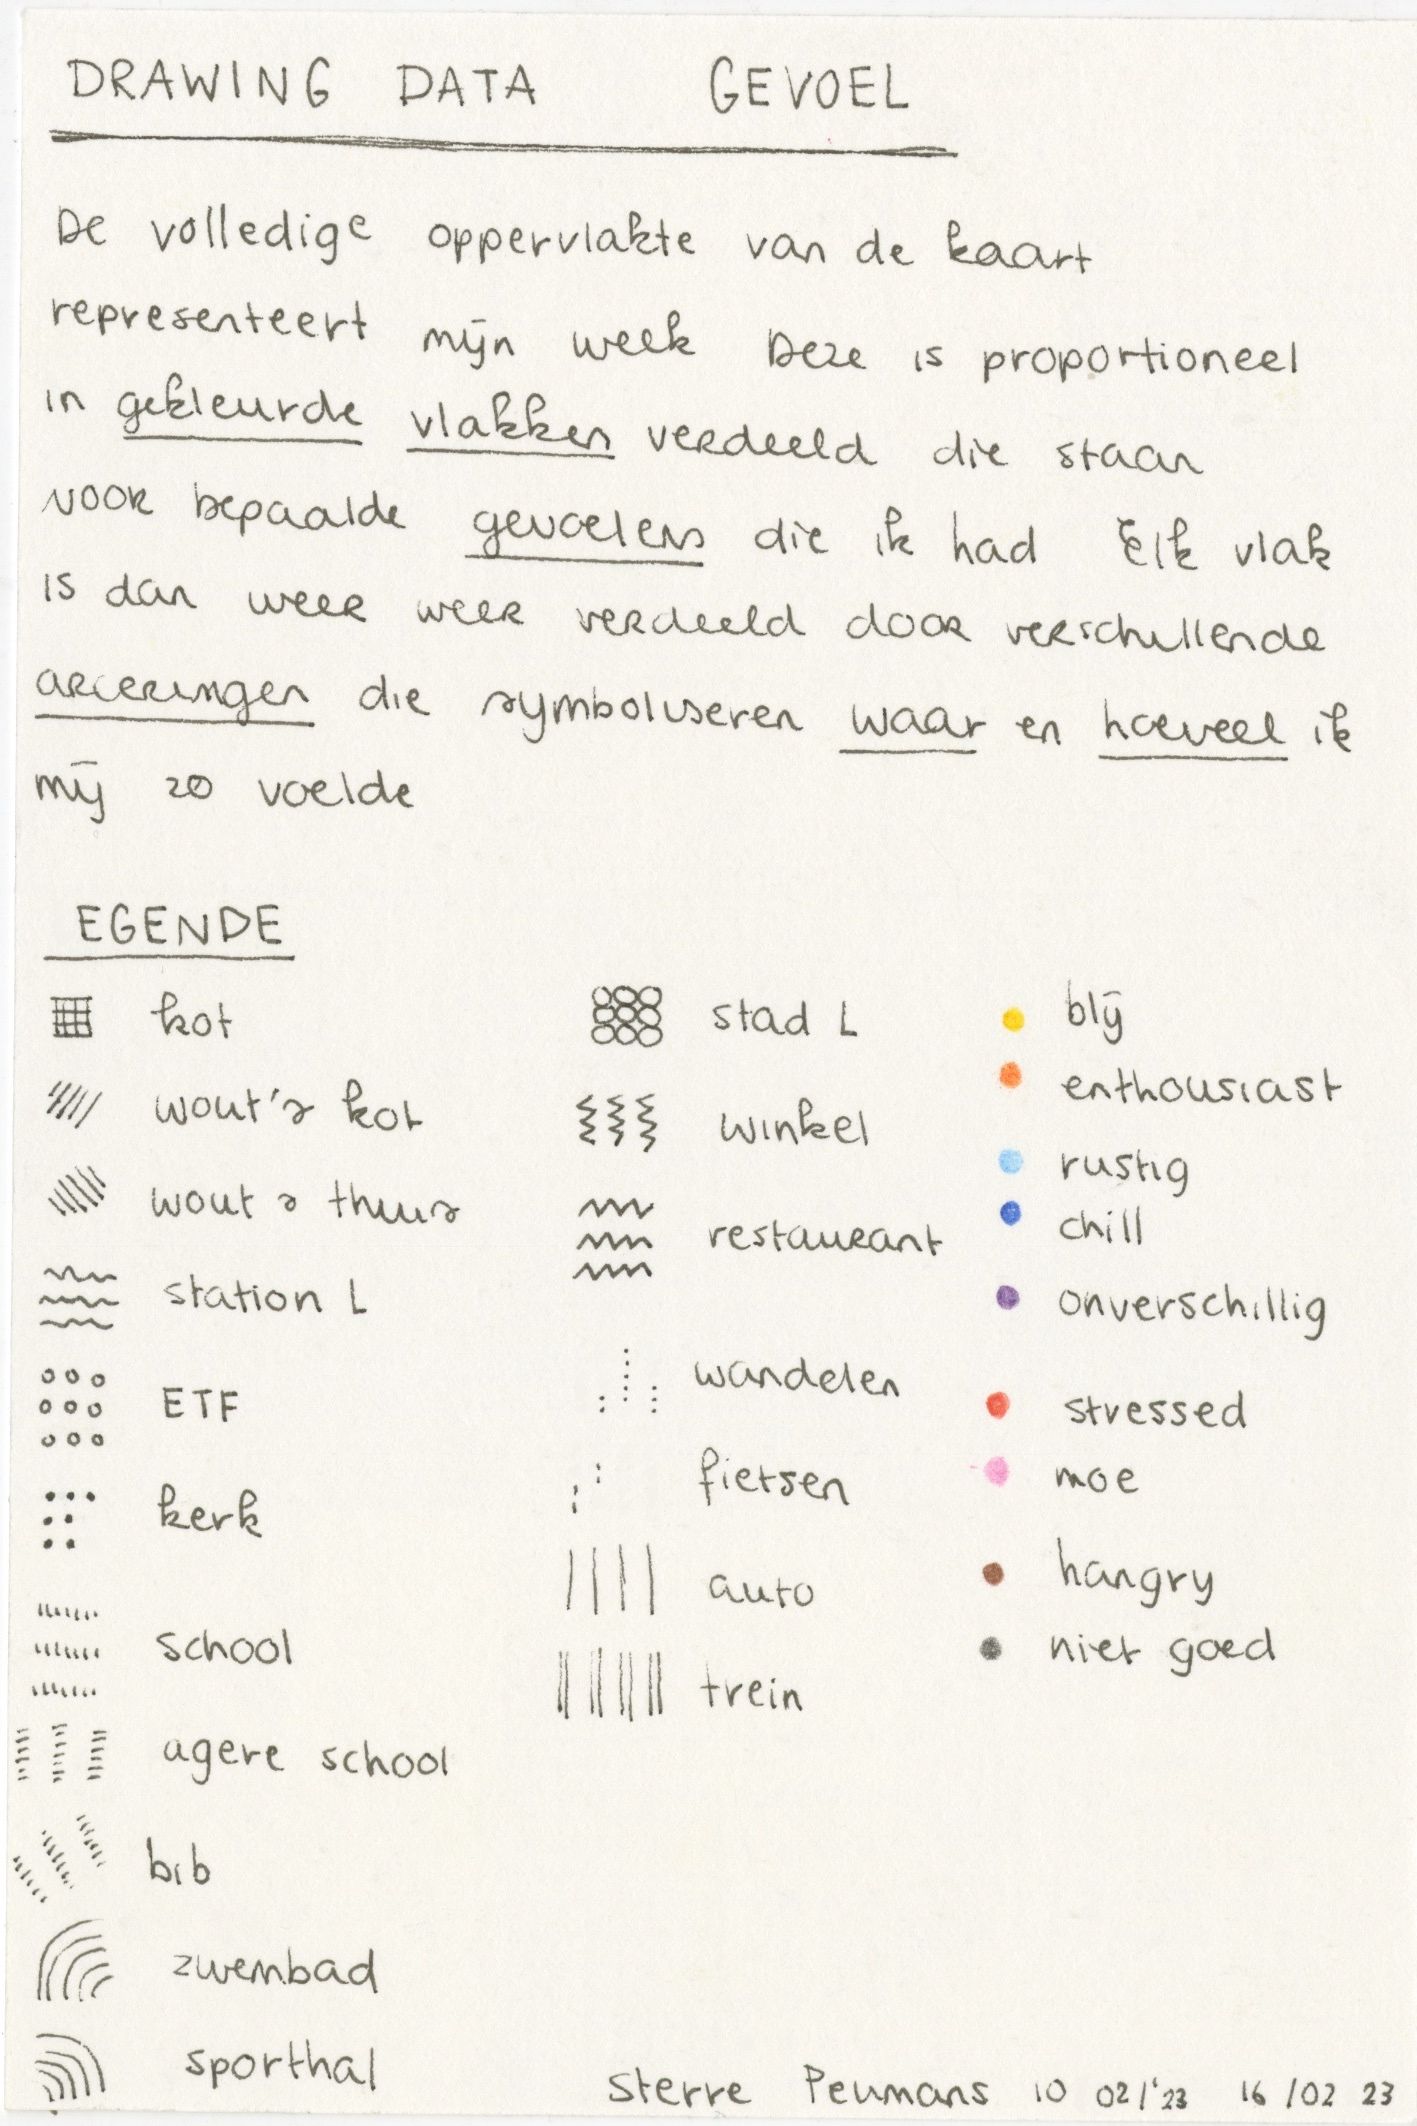 DRAWING DATA GEVOEL
De volledige oppervlakte van de kaart
representeert mijn week Deze is proportioneel
in gekleurde vlakken verdeeld die staan
voor bepaalde gevoelens die ik had Elk vlak
is dan weer weer verdeeld door verschillende
arceringen die symboliseren waar en hoeveel ik
mij zo voelde
EGENDE
kot
wout's kot
wout s thuis
station L
ETF
kerk
school
agere school
bib
zwembad
sporthal
stad L
winkel
restaurant
wandelen
fietsen
auto
trein
blij
enthousiast
rustig
chill
onverschillig
stressed
moe
hangry
niet goed
Sterre Peumans 10 02/'23 16/02 23